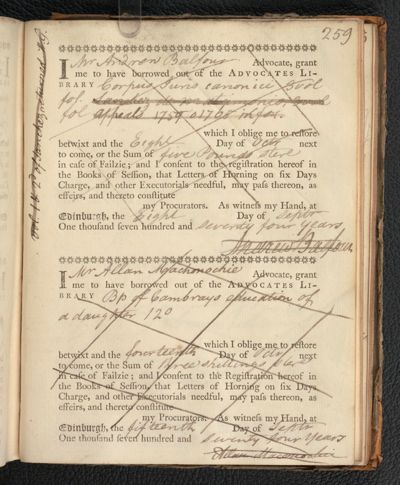 259
I Mr Andrew Balfour Advocate, grant
me to have borrowed out of the ADVOCATES LI-
BRARY Corpus Juris canonici 3 vol
fol.
fol appeals 1759 to 1760 in fol.
which I oblige me to restore
betwixt and the Eight Day of Octr next
to come, or the Sum of five Pounds Ster
in case of Failzie; and I consent to the registration hereof in
the Books of Session, that Letters of Horning on six Days
Charge, and other Executorials needful, may pass thereon, as
effeirs, and thereto constitute
my Procurators. As witness my Hand, at
Edinburgh, the Eight Day of Septr
One thousand seven hundred and seventy four years
Andrew Balfour
I Mr Allan Maconochie Advocate, grant
me to have borrowed out of the ADVOCATES LI-
BRARY Bp of Cambrays education of
a daughter 12o
which I oblige me to restore
betwixt and the fourteenth Day of Octr next
to come, or the Sum of three shillings Ster
in case of Failzie; and I consent to the Registration hereof in
the Books of Session, that Letters of Horning on six Days
Charge, and other Executorials needful, may pass thereon, as
effeirs, and thereto constitute
my Procurators. As witness my Hand, at
Edinburgh, the fifteenth Day of Septr
One thousand seven hundred and seventy four years
Allan Maconochie